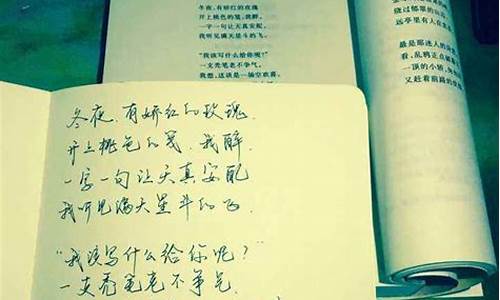 冬夜，有娇红的玫瑰
开上桃色的笺，我醉，
一字一句让天真安配，
我听见满天星斗的飞。
“我该写什么给你呢？”
一支秃笔老不争气，
我想，这该是一场空欢喜，
远亭里有人在
最是那迷人的
看，乱鸦正点破
一顶的小轿，
又赶着前路的
冬夜，有娇红的玫瑰
开上桃色的笺，我醉
一字一句让天真安配
我听见满天星斗的飞.
“我该写什么给你呢？”
一支秃笔老不争气.